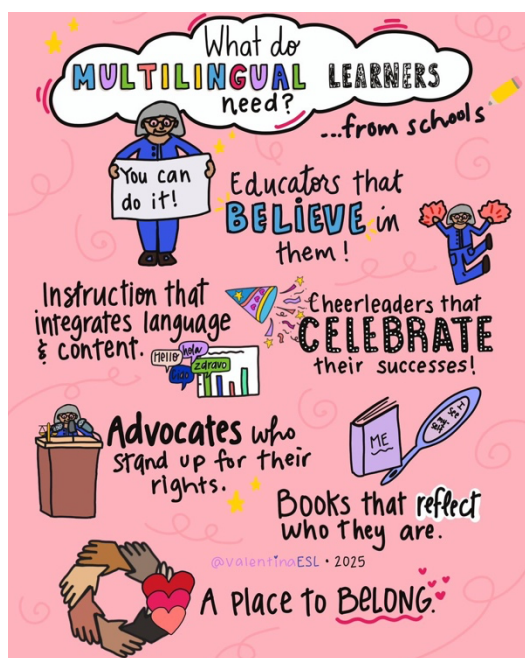 What do
MULTILINGUAL LEARNERS
need?
...from schools
You can
do it!
Educators that
BELIEVE in
them!
Instruction that
integrates language
& content.
Hello
hola
zdravo
Ciao
Cheerleaders that
CELEBRATE
their successes!
Advocates who
stand up for their
rights.
ME
I see
my
self.
Books that reflect
who they are.
@valentinaESL • 2025
A Place to BELONG.